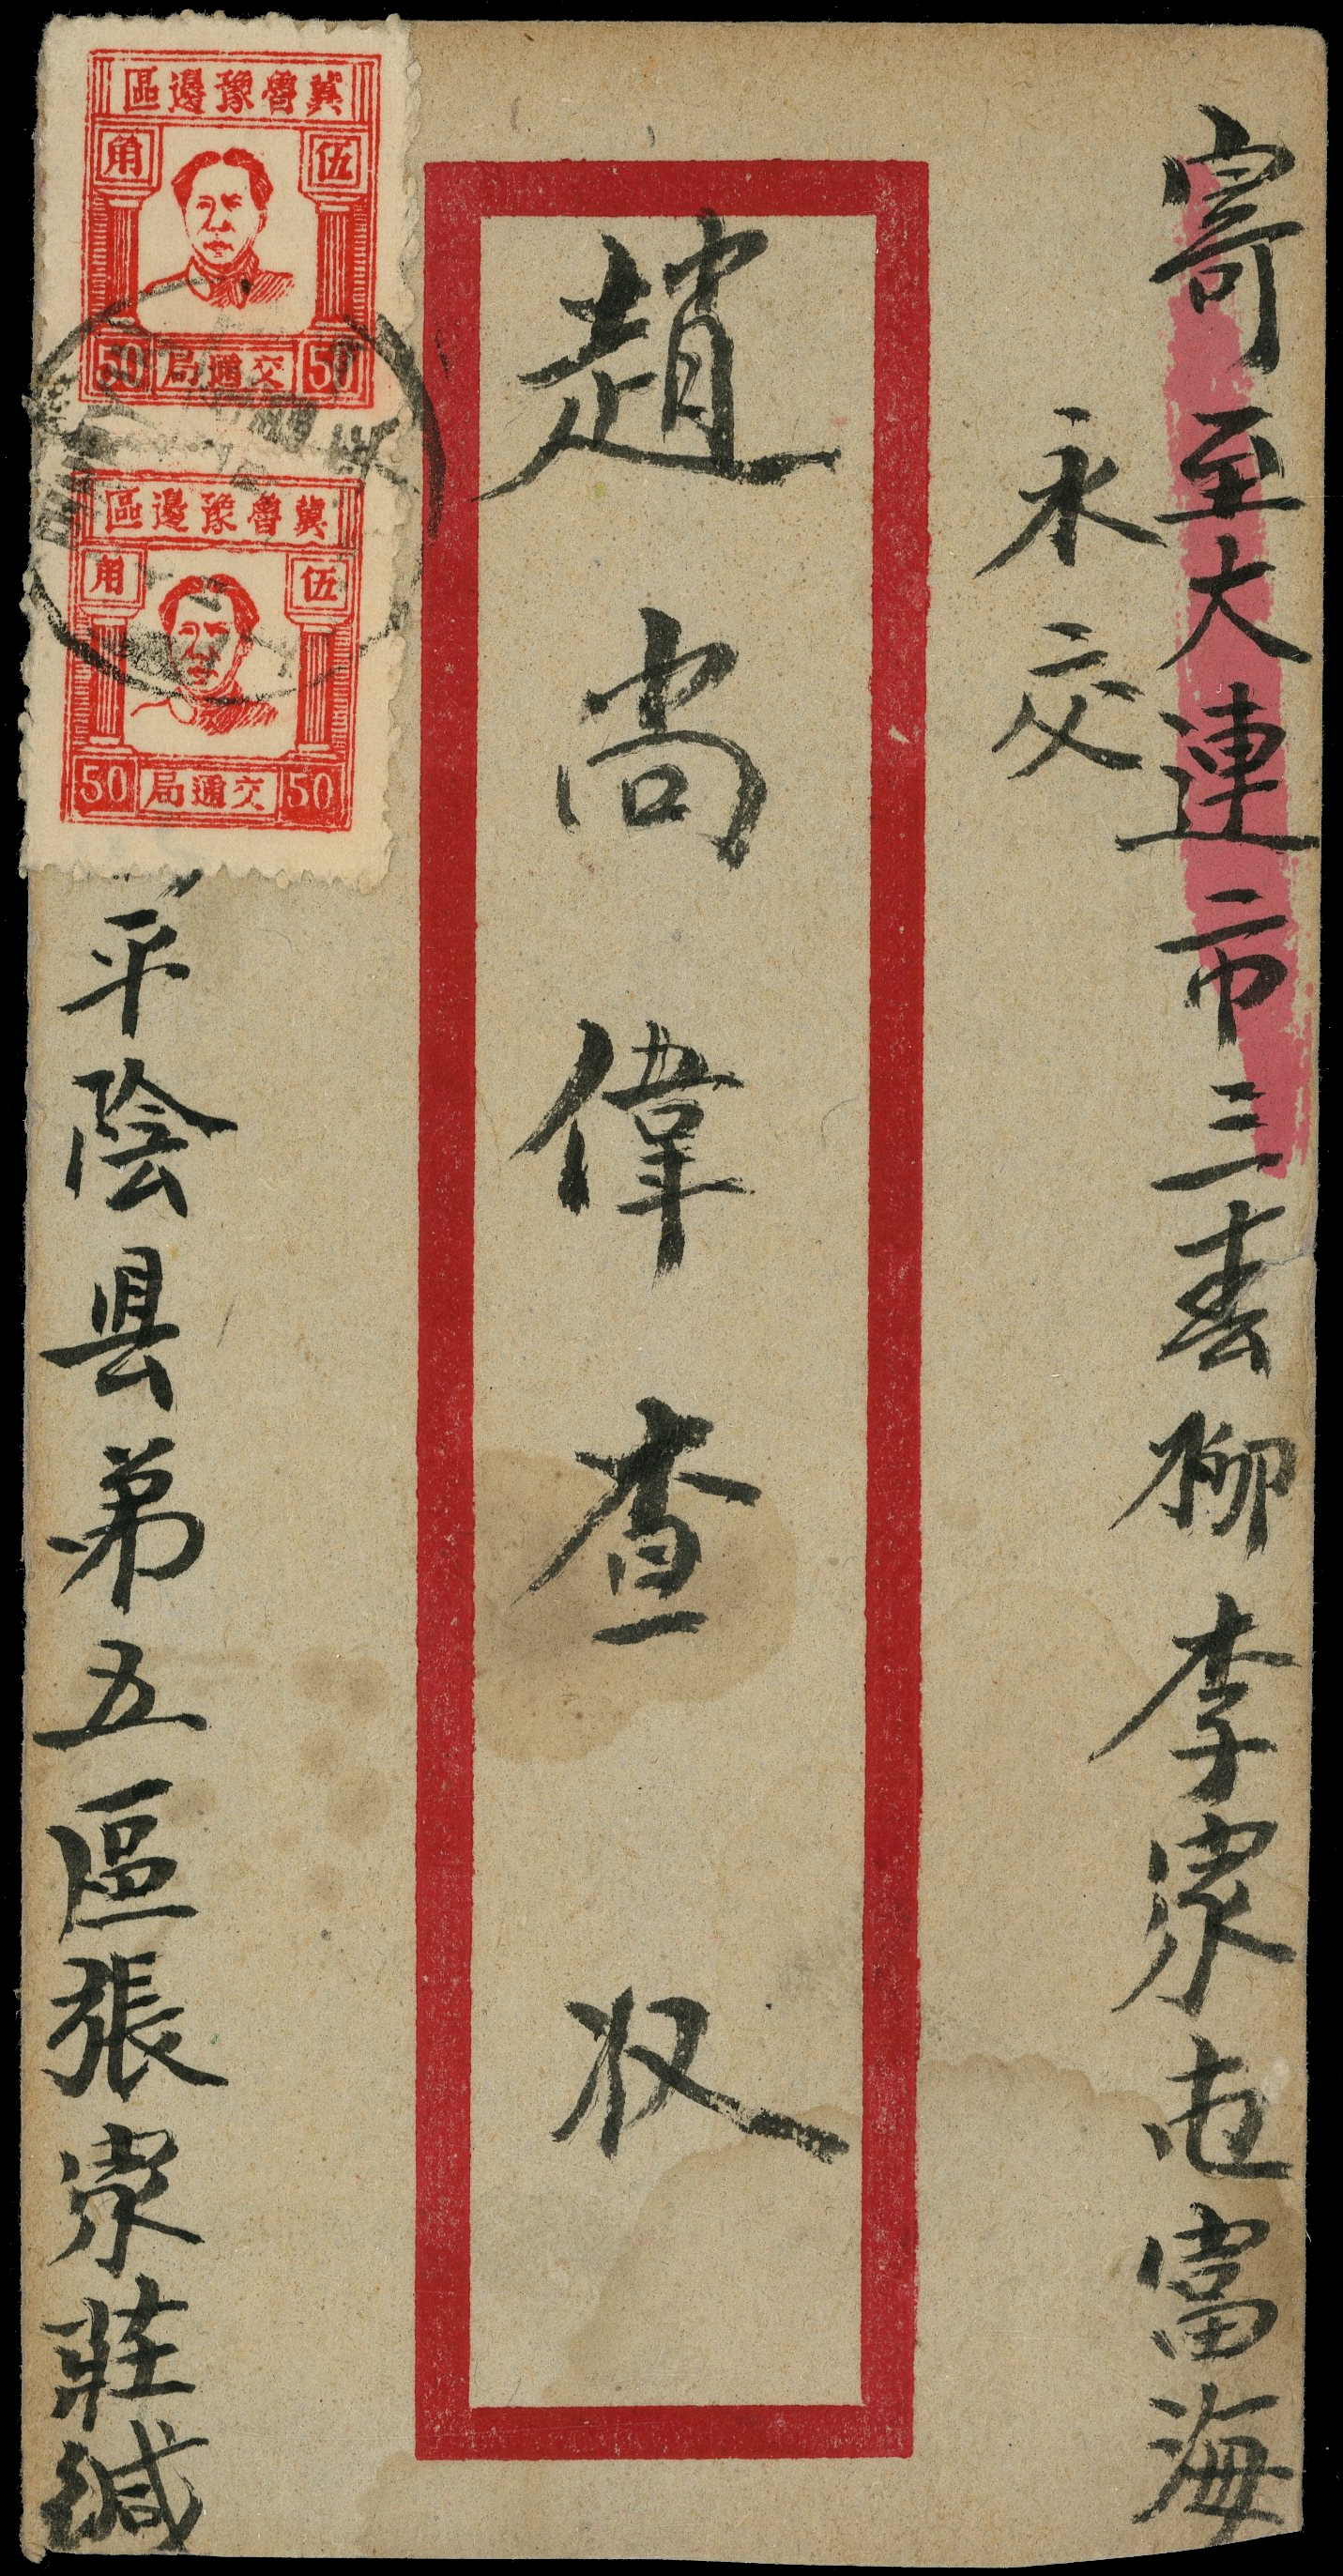 寄至大連市三春柳李家屯富海
永交
趙尚偉查收
平陰县弟五區張家莊缄
冀魯豫邊區
伍 角
50 交通局 50
冀魯豫邊區
伍 角
50 交通局 50